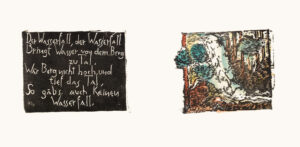 Der Wasserfall, der Wasserfall
Bringt Wasser von dem Berg
zu Tal.
Wär Berg nicht hoch und
tief das Tal
So gäb's auch keinen
Wasserfall.